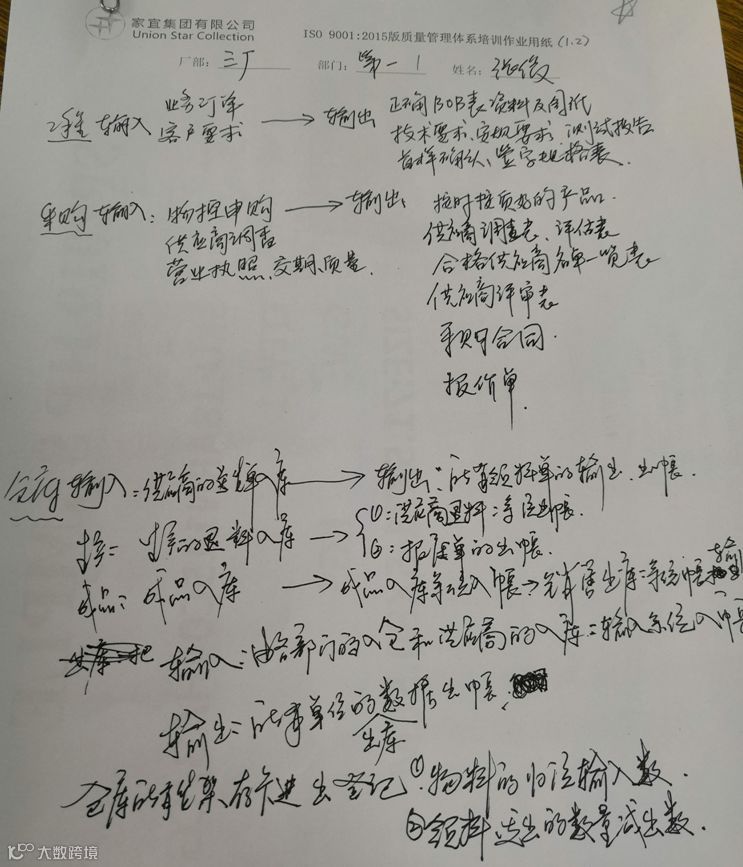 家宜集团有限公司
Union Star Collection
ISO 9001:2015版质量管理体系培训作业用纸(1.2)
厂部: 三厂 部门: 第一 姓名:
工程 输入 业务订单 → 输出 正确BOB表 资料及图纸
客户要求 技术要求、安规要求、测试报告
首样确认、签字规格表.
采购 输入: 物控申购 → 输出: 按时按质好的产品.
供应商调查 供应商调查表、评估表
营业执照、交期、质量. 合格供应商名单一览表
供应商评审表
采购合同.
报价单.
仓 输入: 供应商的送货单入库 → 输出: 所有领料单的输出 出帐.
生产的退料入库 → ①: 供应商退料: 系统出帐.
②: 报废单的出帐.
成品: 成品入库 → 成品入库系统入帐 → 销售出库: 系统出帐
输入: 由各部门的入仓和供应商的入库: 输入系统入帐
输出: 所有单位的数据出帐.
出库
仓库所有货架存卡进出登记 ①. 物料的归位输入数.
②领料 发出的数量减出数.
大数跨境